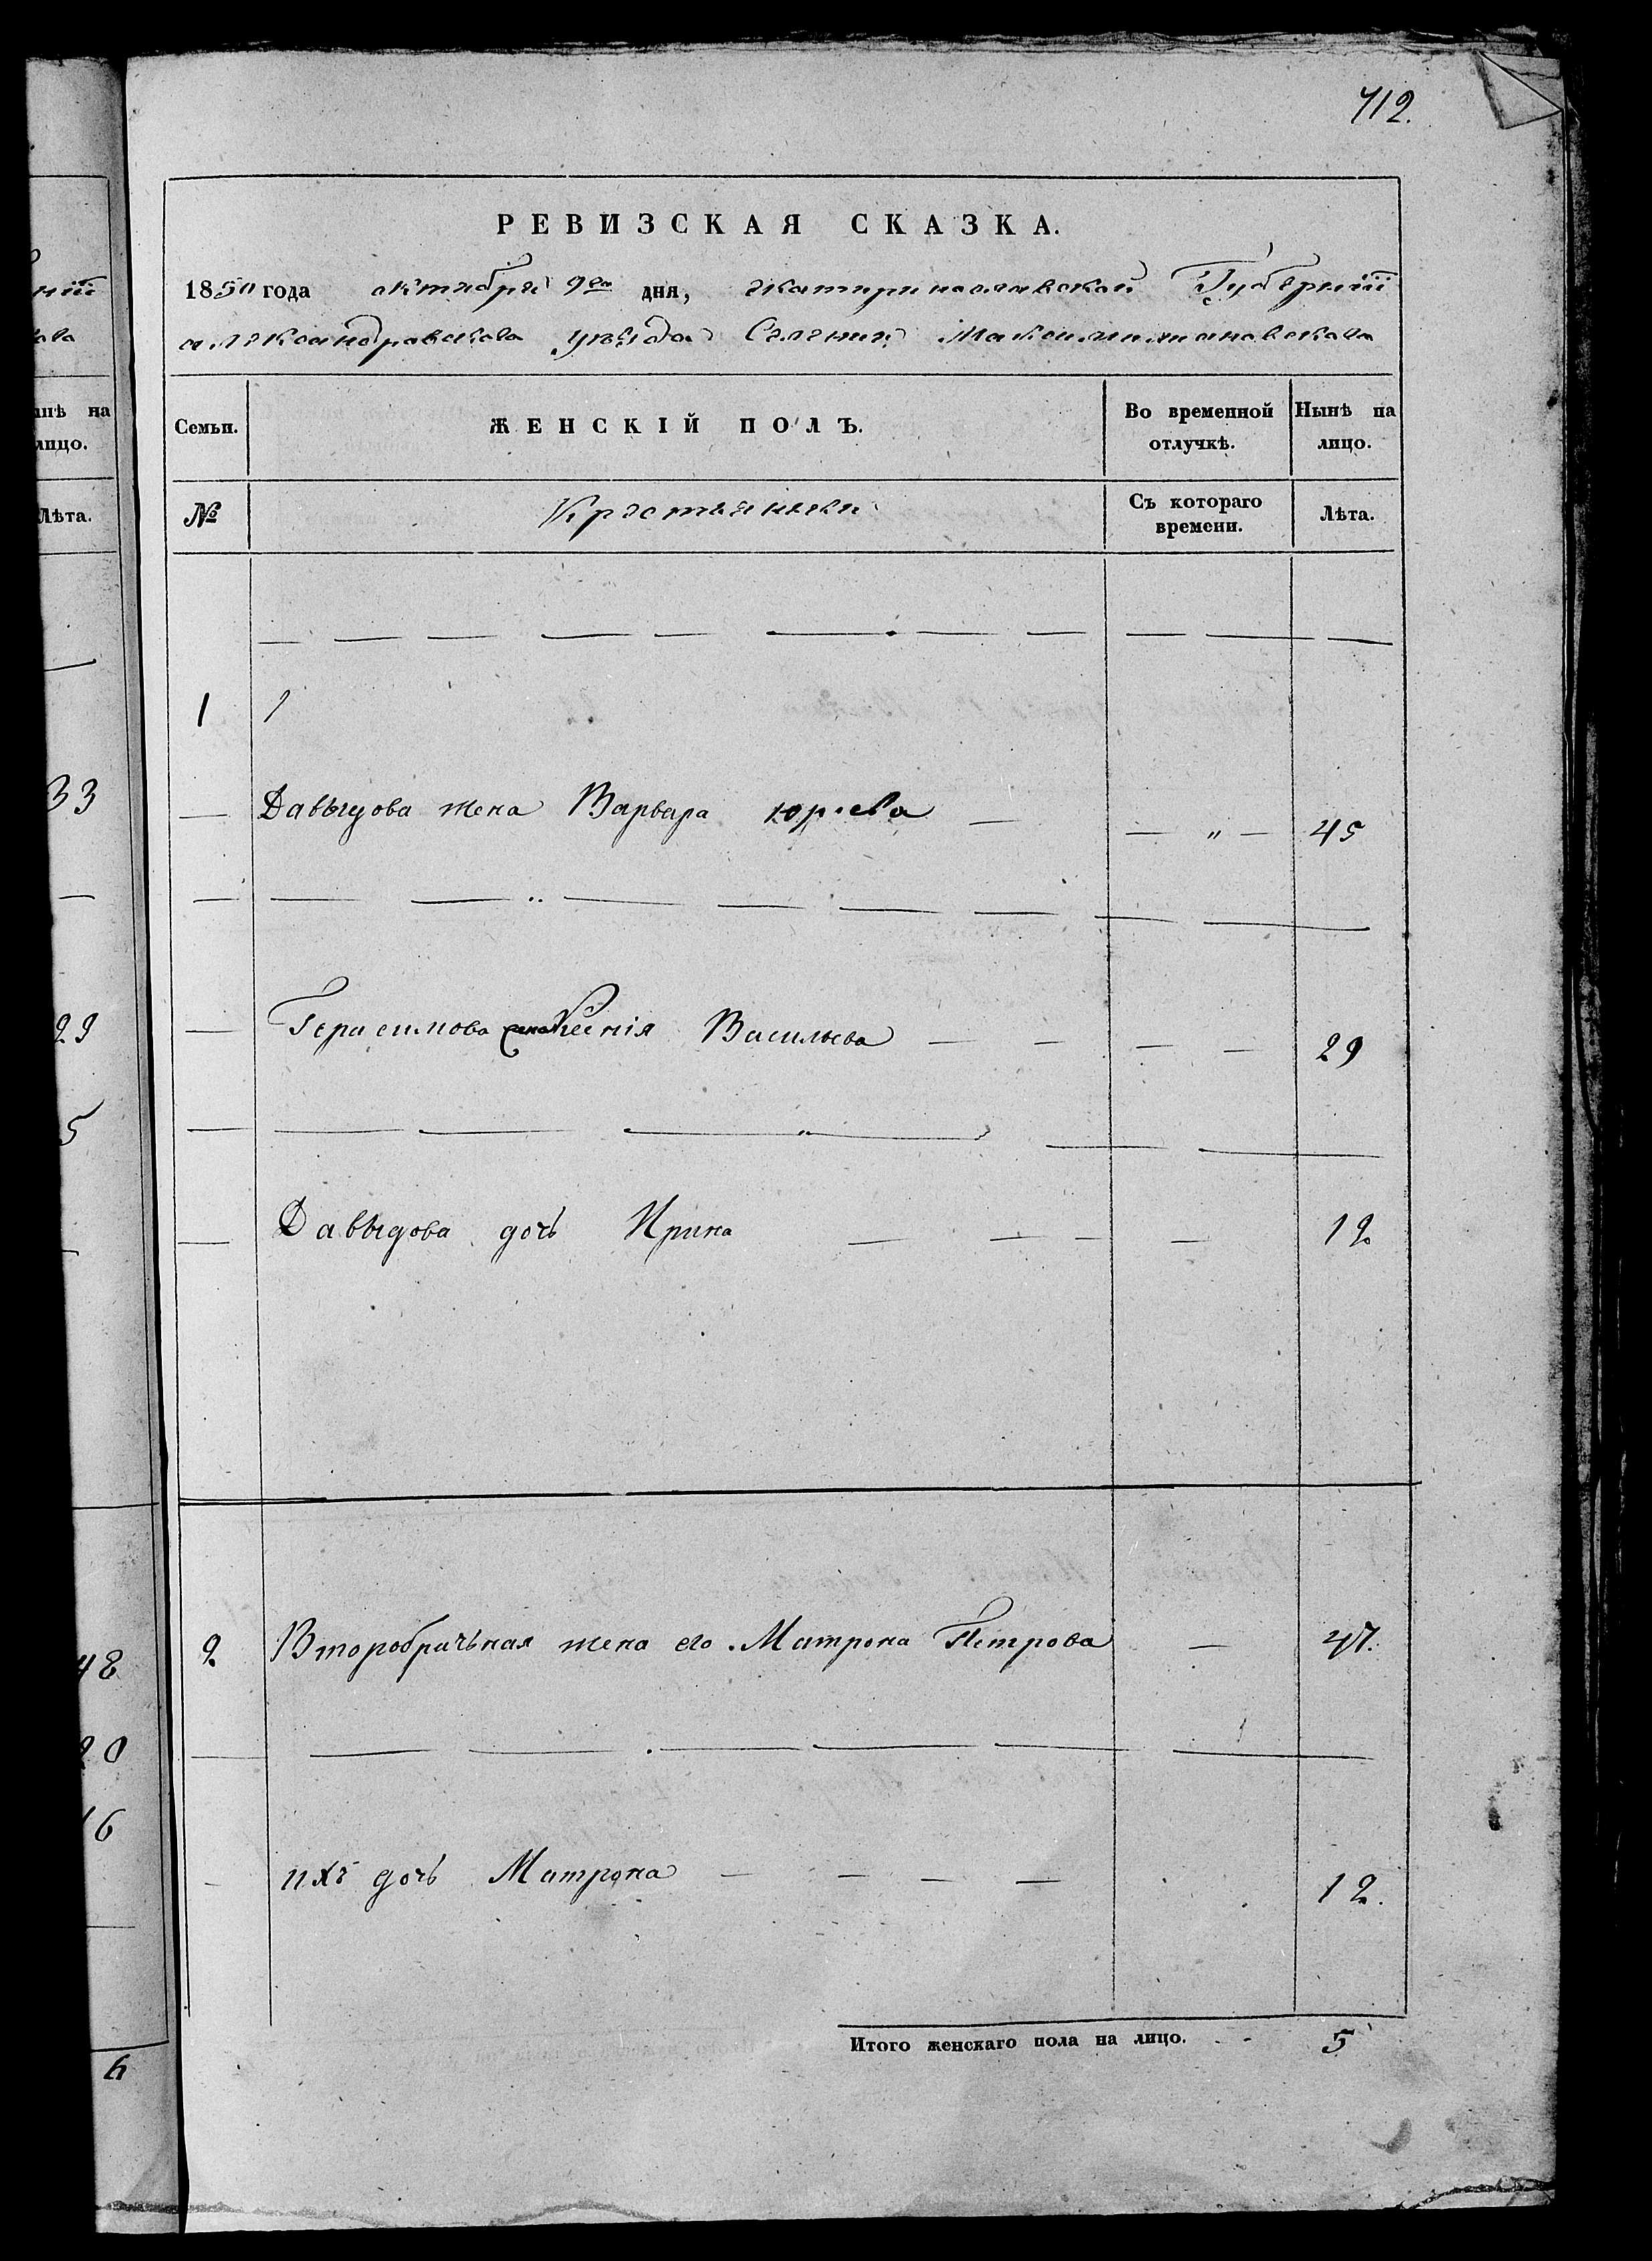 нiй
ова
инѣ на
лицо.
Лѣта.
33
29
5
48
20
16
6
712.
РЕВИЗСКАЯ СКАЗКА.
1850 года октября 9го дня, екатеринославской Губернiй
александравскова уѣзда Селения Максимильяновскова
Семьи. ЖЕНСКІЙ ПОЛЪ. Во временной отлучкѣ. Нынѣ на лицо.
№ Крестьянки Съ котораго времени. Лѣта.
1 1
Давыдова жена Варвара юрьева — — „ — 45
Герасимова жена Ксенiя Васильева — — — — 29
Давыдова дочь Ирина — — — — 12
2 Второбрачьная жена его Матрона Петрова — 47.
ихъ дочь Матрона — — — — 12.
Итого женскаго пола на лицо. 5